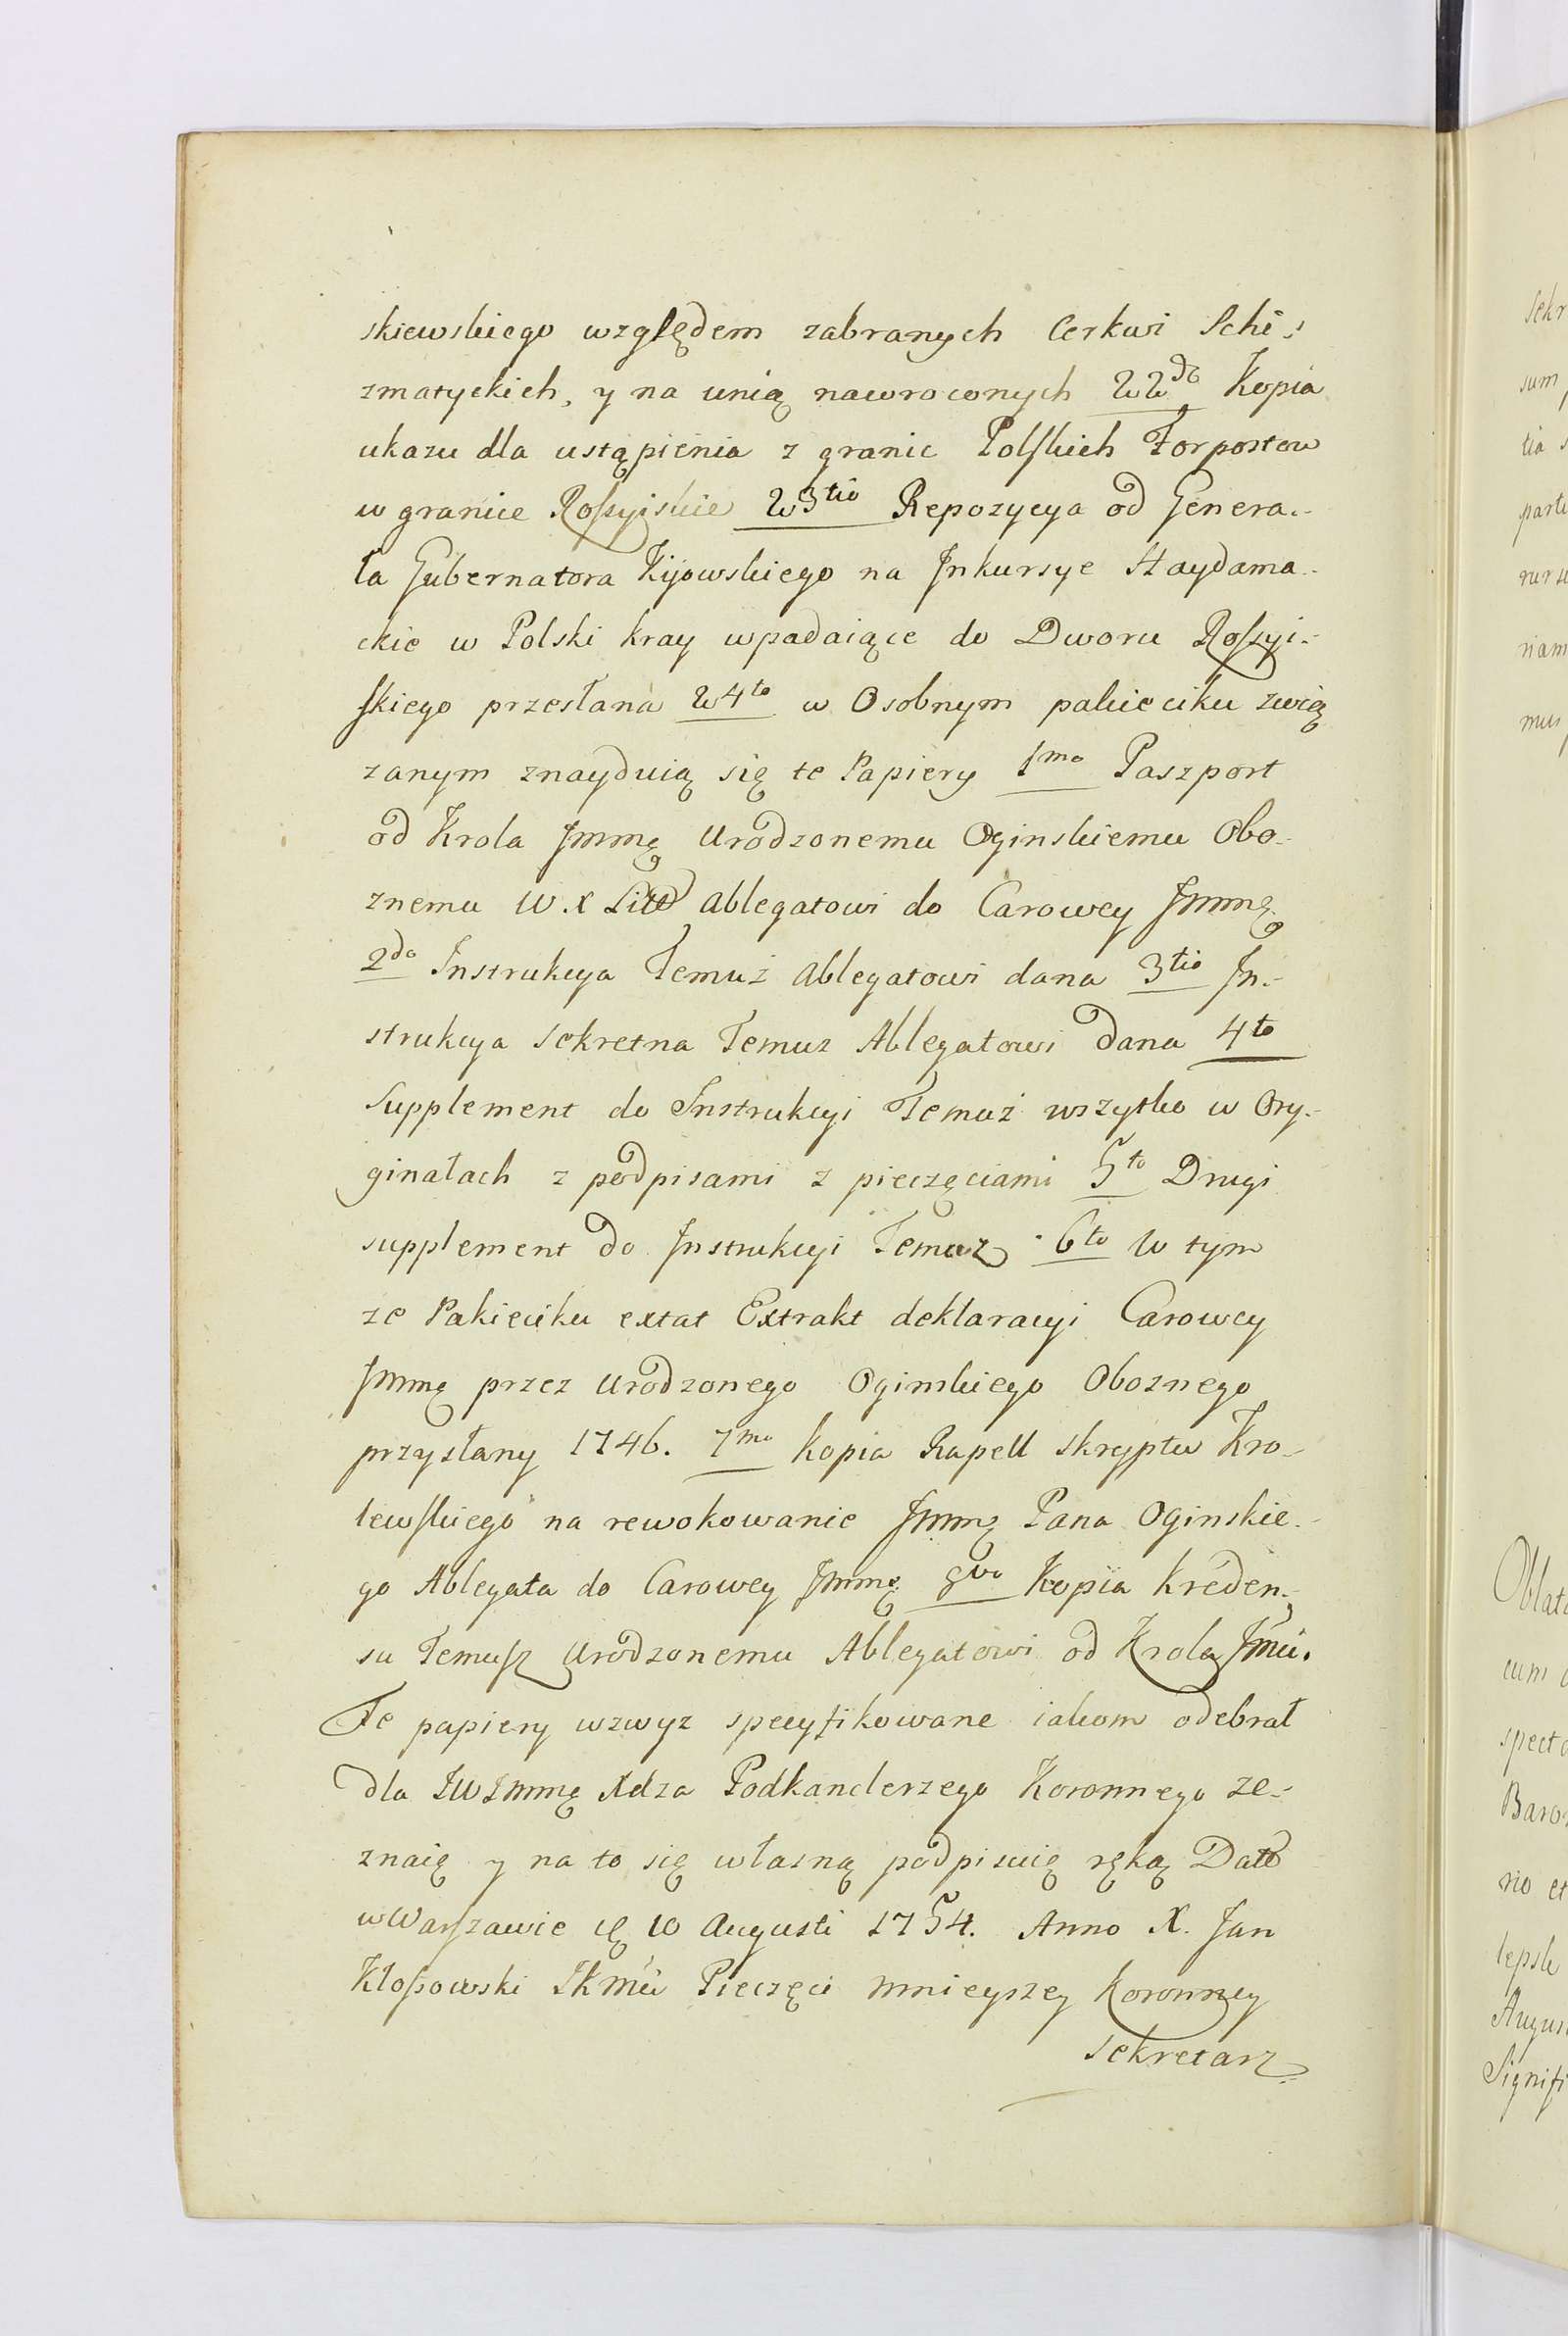 skiewskiego względem zabranych Cerkwi Schi-
zmatyckich, y na unią nawroconych W 2do Kopia
ukazu dla ustąpienia z granic Polskich Forpostow
w granice Rossyiskie W 3tio Repozycya od Genera-
ła Gubernatora Kijowskiego na Inkursye Haydama-
ckie w Polski kray wpadaiące do Dworu Rossyi-
skiego przesłana W 4to w Osobnym pakieciku zwią
zanym znayduią się te Papiery 1mo Paszport
od Krola Jmmę Urodzonemu Oginskiemu Obo-
znemu W. X Litt ablegatowi do Carowey Jmmę
2do Instrukcya Temuż ablegatowi dana 3tio In-
strukcya Sekretna Temuz Ablegatowi dana 4to
Supplement do Instrukcyi Temuż wszytko w Ory-
ginałach z podpisami z pieczęciami 5to Drugi
supplement do Instrukcyi Temuz 6to W tym
ze Pakieciku extat Extrakt deklaracyi Carowey
Jmmę przez Urodzonego Oginskiego Oboznego
przysłany 1746. 7mo Kopia Rapell skryptu Kro-
lewskiego na rewokowanie Jmmę Pana Oginskie-
go Ablegata do Carowey Jmmę 8vo Kopia Kreden-
su Temusz Urodzonemu Ablegatowi od Krola Jmci.
Te papiery wzwyz specyfikowane iakom odebrał
dla JWJmmę Xdza Podkanclerzego Koronnego ze-
znaię y na to się własną podpisuię ręką Datt
w Warszawie 10 Augusti 1754. Anno X. Jan
Kłossowski JKMci Pieczęci mnieyszey Koronney
Sekretarz
sum
tia
parti
nam
mus
Oblat
cum
Baro
no et
Signifi